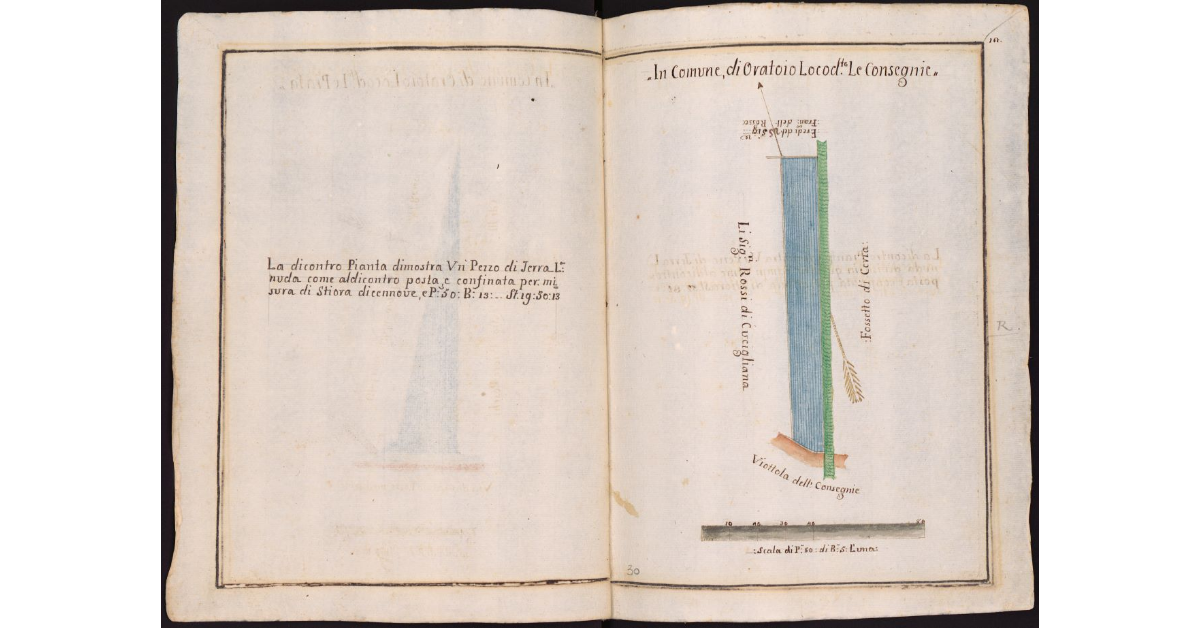 La dicontro Pianta dimostra Vn Pezzo di Terra L:ta
nuda come aldicontro posta, e confinata per mi
sura di Stiora dicennove, e P:e 50: B: 13: .. St. 19: 50: 13
10.
In Comune, di Oratoio Locod:to Le Consegnie
Eredi del Sig
Fran: dell Rosso
Li Sig:ri Rossi di Cucigliana
:Fossetto di Ceria:
Viottola dell: Consegnie
10 20 30 40 50
:Scala di P:e 50: di B: 5: l'una:
30
R.